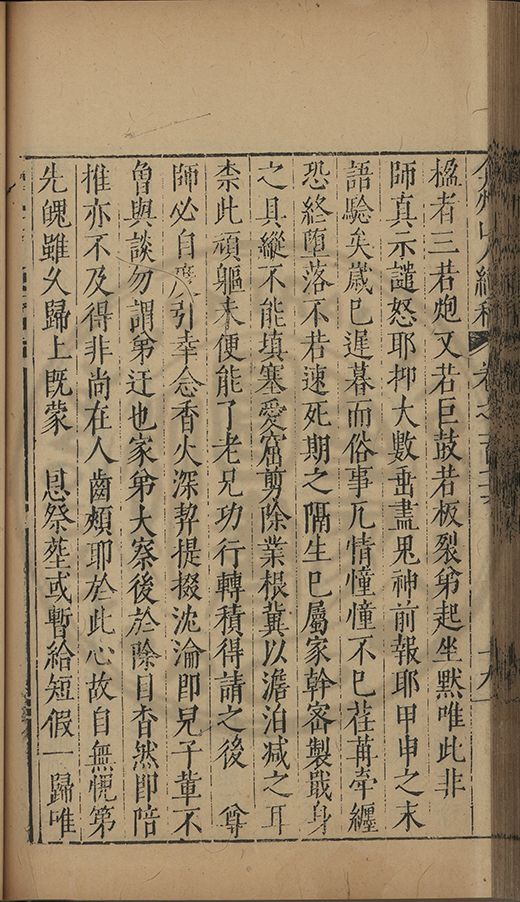 弇州山人續稿 卷之一百 十九
楹者三若炮又若巨鼓若板裂弟起坐默唯此非
師真示譴怒耶抑大數垂盡鬼神前報耶甲申之末
語驗矣歲已遲暮而俗事冗情憧憧不已荏苒牽纏
恐終墮落不若速死期之隔生已屬家幹密製戢身
之具縱不能填塞愛窟剪除業根冀以澹泊減之耳
柰此頑軀未便能了老兄功行轉積得請之後　尊
師必自度引幸念香火深契提掇沈淪即兒子輩不
當與談勿謂弟迂也家弟大察後於除目杳然即陪
推亦不及得非尚在人齒頰耶於此心故自無愧第
先魄雖久歸上既蒙　恩祭塟或暫給短假一歸唯